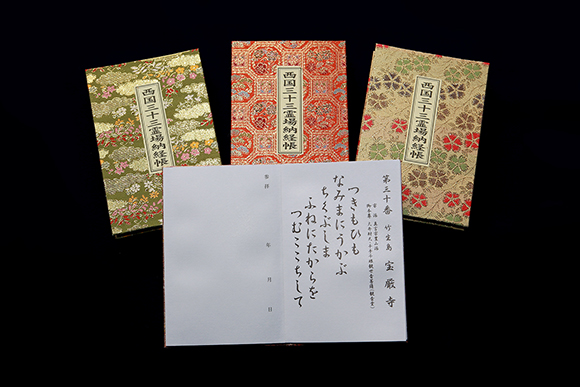 西国三十三霊場納経帳
西国三十三霊場納経帳
西国三十三霊場納経帳
第三十番 竹生島 宝厳寺
つきもひも
なみまにうかぶ
ちくぶしま
ふねにたからを
つむここちして
参拝 年 月 日